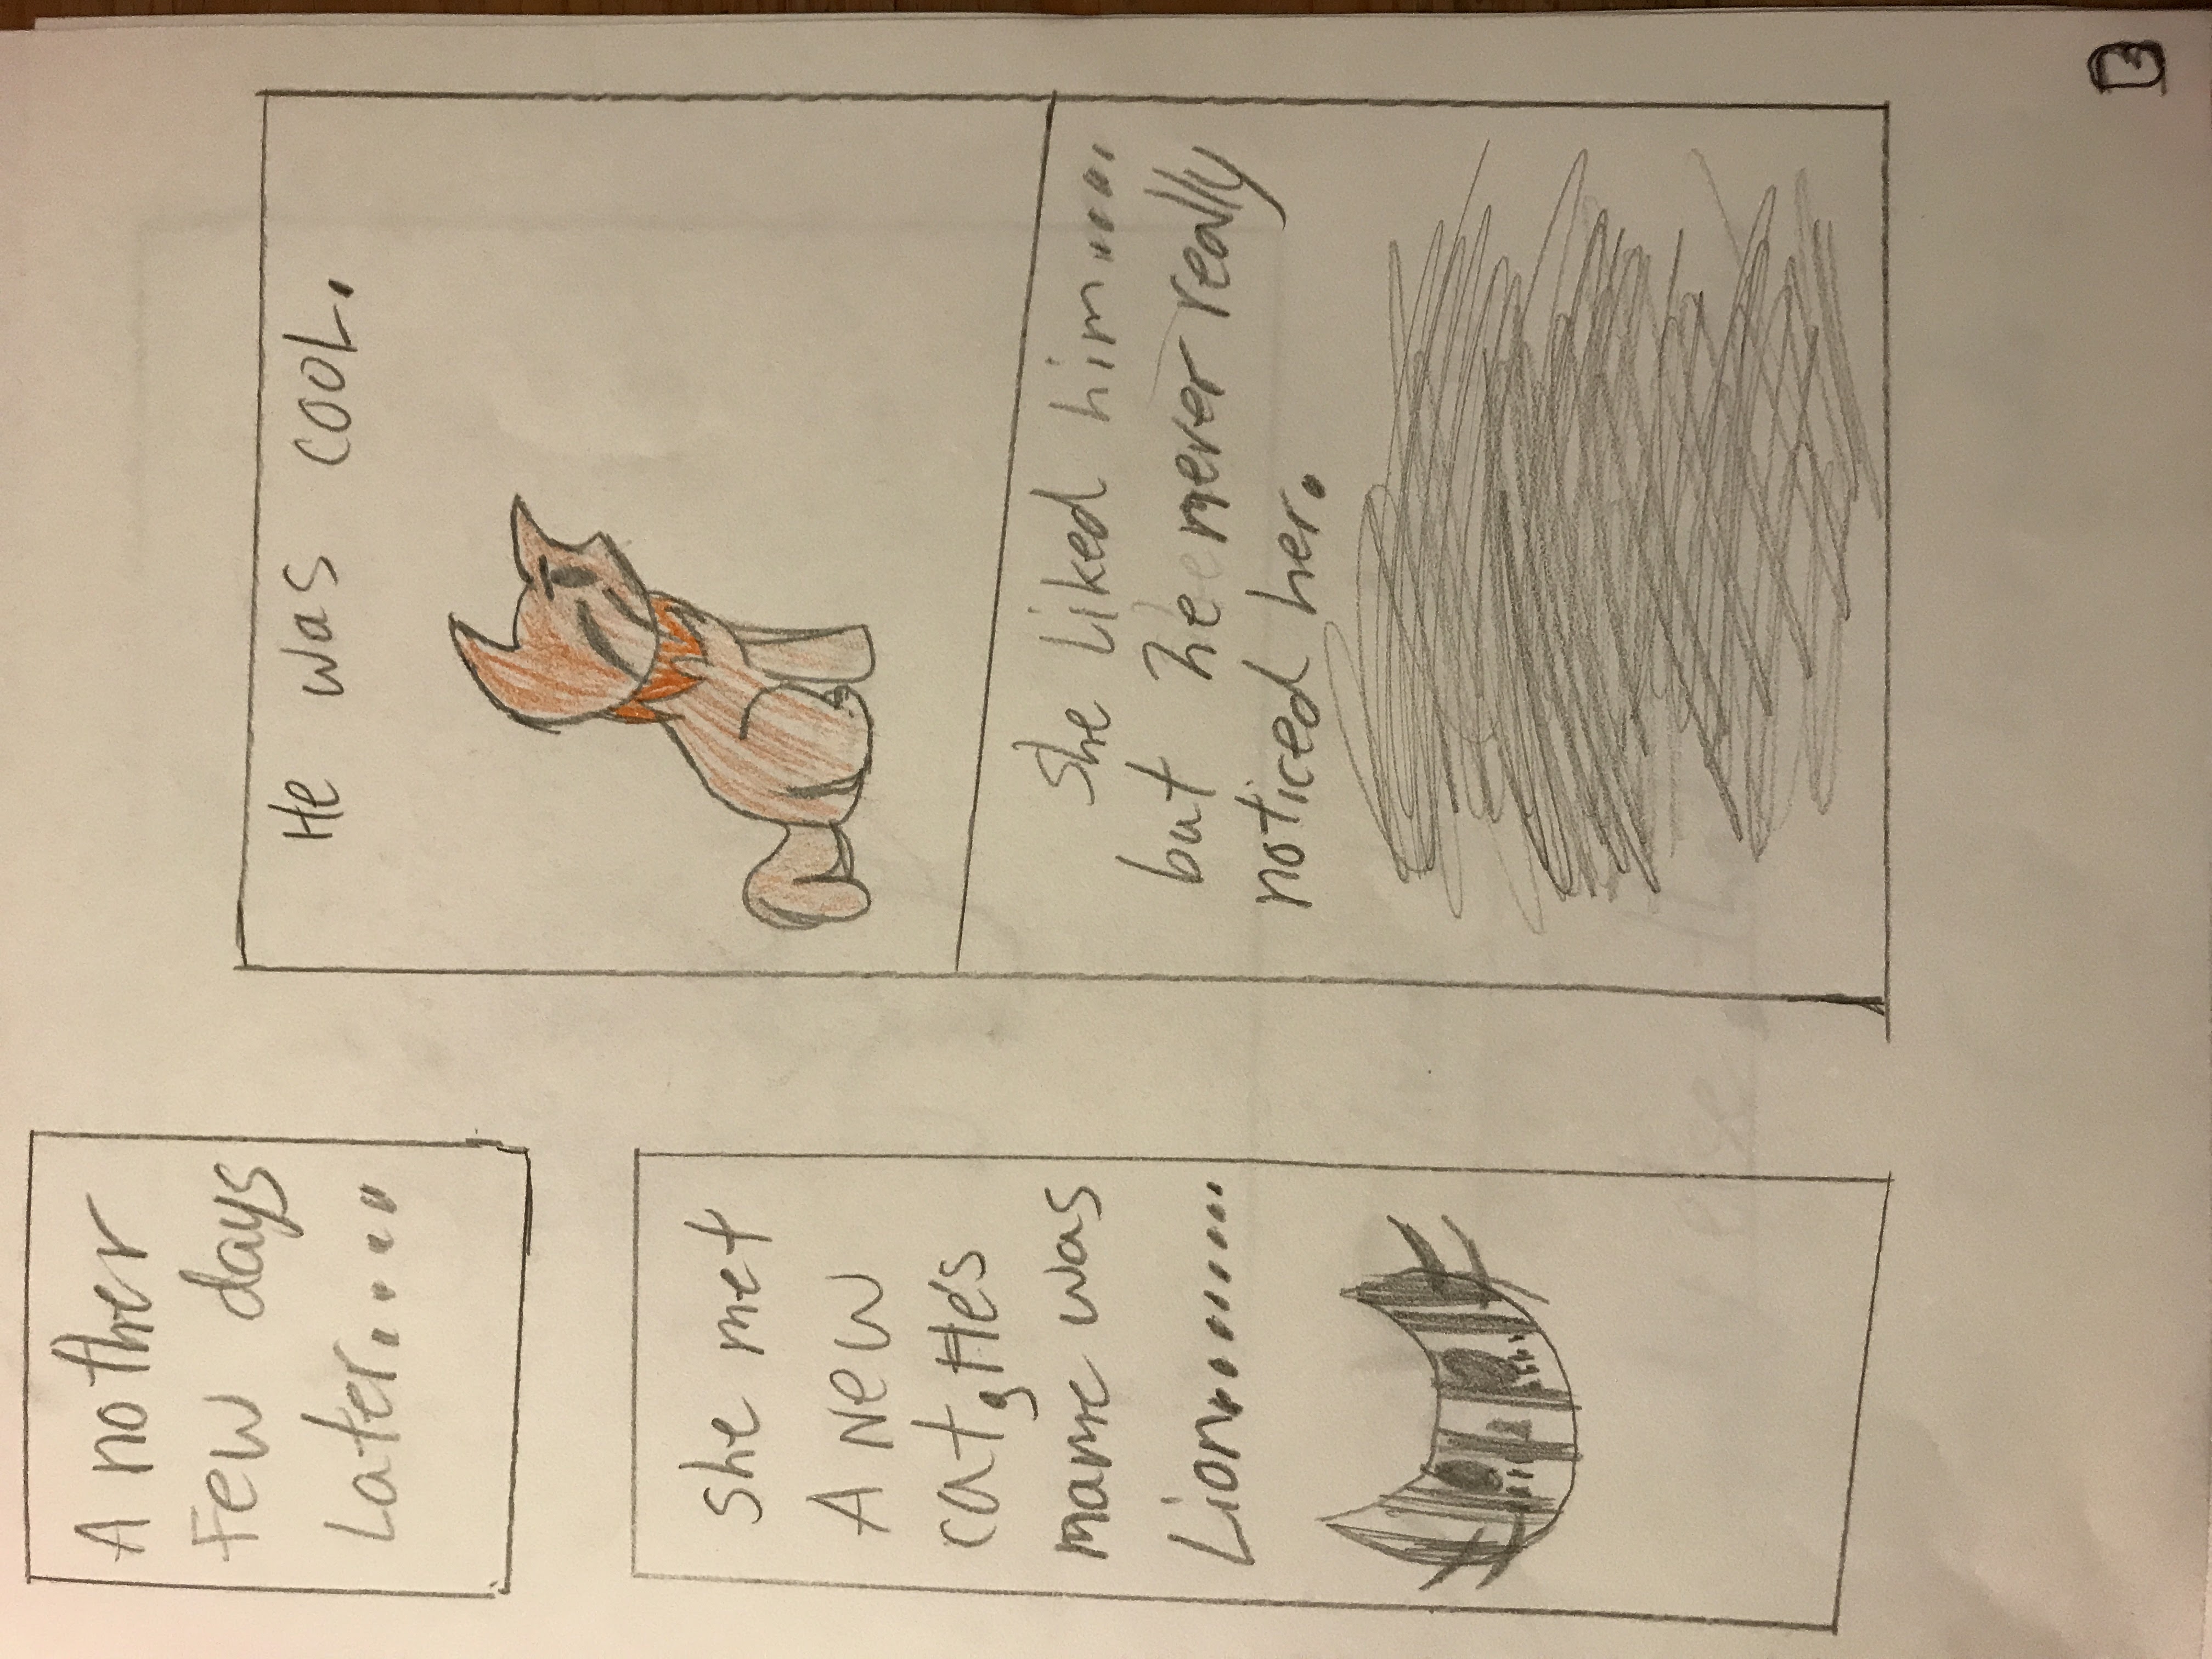 A nother
Few days
Later....
She met
A New
cat, He's
mame was
Lion.........
He was cool.
She liked him.....
but he never really
noticed her.
3